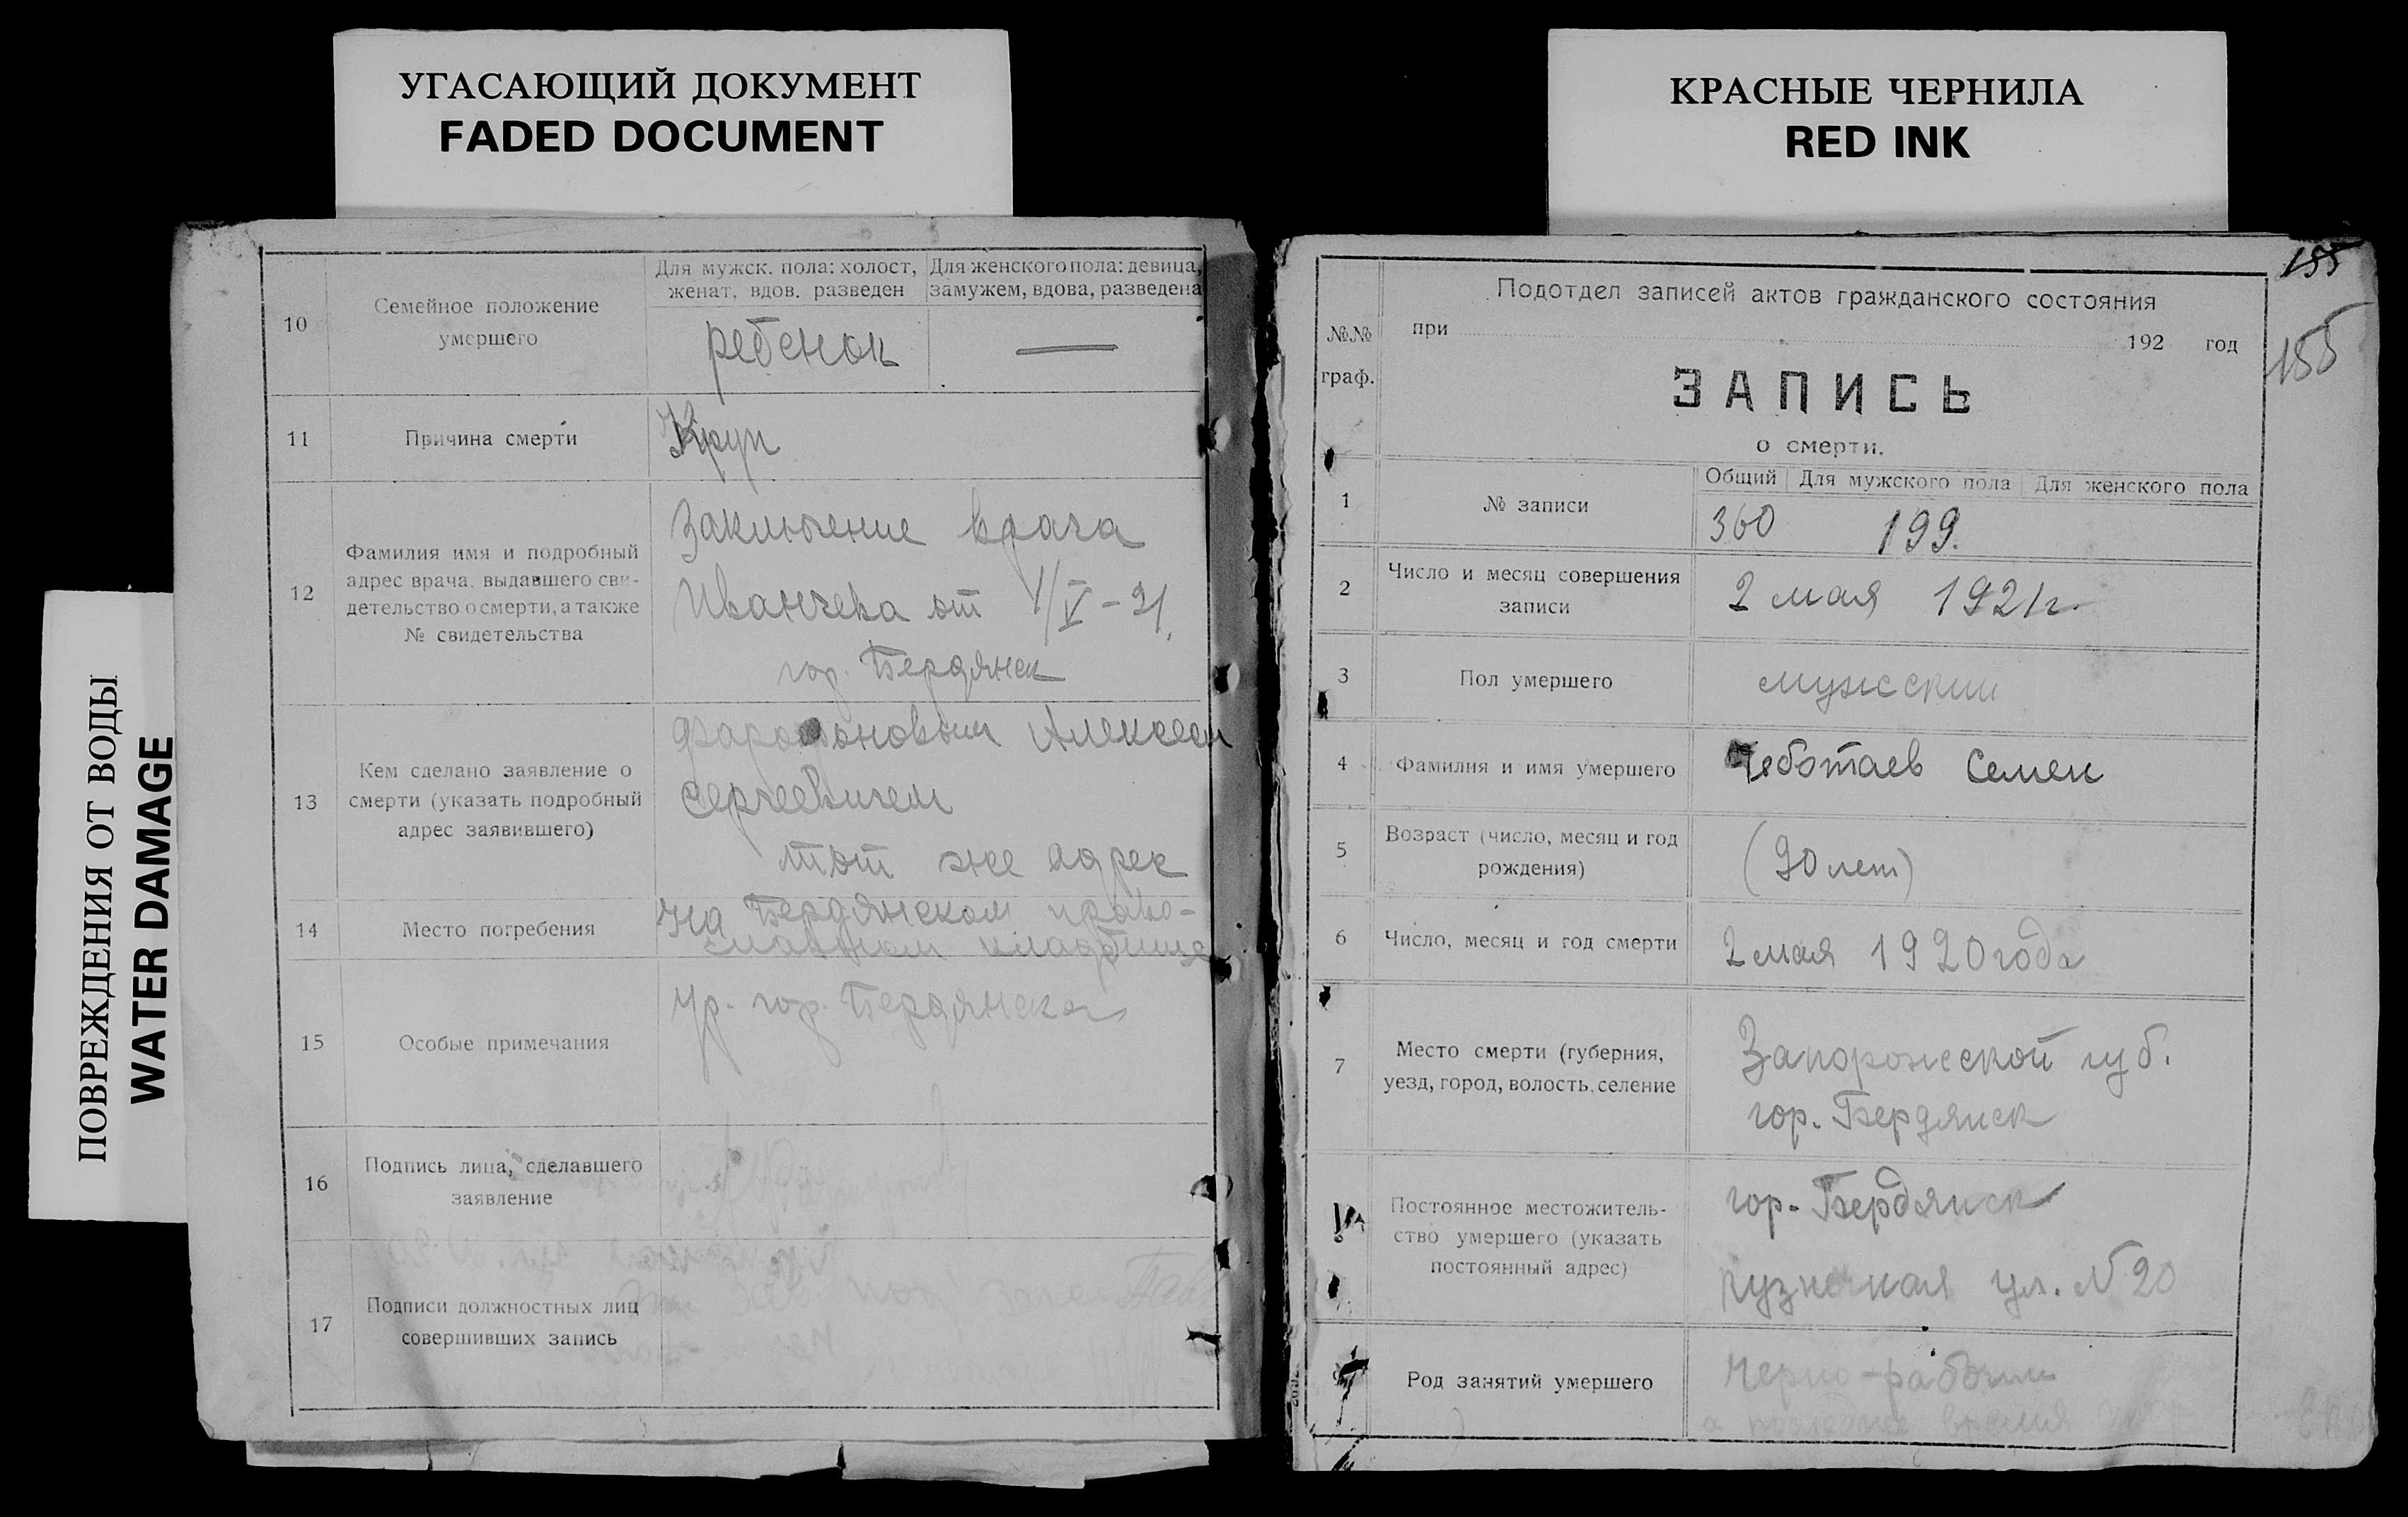 УГАСАЮЩИЙ ДОКУМЕНТ
FADED DOCUMENT
КРАСНЫЕ ЧЕРНИЛА
RED INK
ПОВРЕЖДЕНИЯ ОТ ВОДЫ
WATER DAMAGE
10
Семейное положение
умершего
Для мужск. пола: холост,
женат, вдов. разведен
Для женского пола: девица,
замужем, вдова, разведена
ребенок
—
11
Причина смерти
Круп
12
Фамилия имя и подробный
адрес врача, выдавшего сви-
детельство о смерти, а также
№ свидетельства
Заключение врача
Иванчева от 1/V-21
гор. Бердянск
13
Кем сделано заявление о
смерти (указать подробный
адрес заявившего)
Алексеем
Сергеевичем
тот же адрес
14
Место погребения
на Бердянском право-
славном кладбище
15
Особые примечания
ур. гор. Бердянска
16
Подпись лица, сделавшего
заявление
17
Подписи должностных лиц
совершивших запись
155
155
№№
граф.
Подотдел записей актов гражданского состояния
при 192 год
ЗАПИСЬ
о смерти.
1
№ записи
Общий Для мужского пола Для женского пола
360 199.
2
Число и месяц совершения
записи
2 мая 1921г.
3
Пол умершего
мужский
4
Фамилия и имя умершего
Чеботаев Семен
5
Возраст (число, месяц и год
рождения)
(90 лет)
6
Число, месяц и год смерти
2 мая 1920 года
7
Место смерти (губерния,
уезд, город, волость, селение
Запорожской губ.
гор. Бердянск
Постоянное местожитель-
ство умершего (указать
постоянный адрес)
гор. Бердянск
кузнечная ул. № 20
Род занятий умершего
Черно-рабочий
время